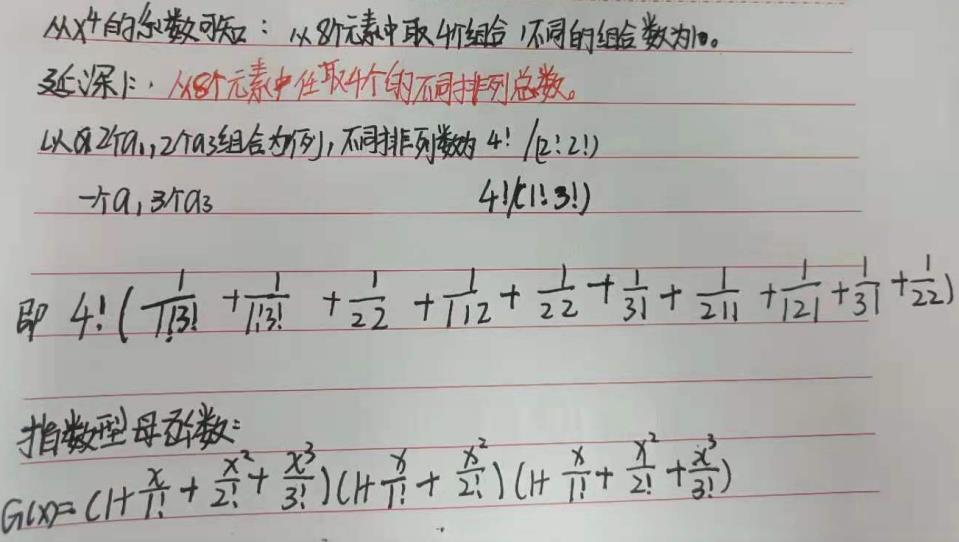 从x⁴的系数可知：从8个元素中取4个组合，不同的组合数为10。
延深下：从8个元素中任取4个的不同排列总数。
以 2个a₁，2个a₃组合为例，不同排列数为 4！/(2！2！)
一个a₁3个a₃ 4！/(1！3！)
即 4！(1/1!3! + 1/1!3! + 1/22 + 1/112 + 1/22 + 1/31 + 1/211 + 1/121 + 1/31 + 1/22)
指数型母函数：
G(x)=(1+x/1!+x²/2!+x³/3!)(1+x/1!+x²/2!)(1+x/1!+x²/2!+x³/3!)